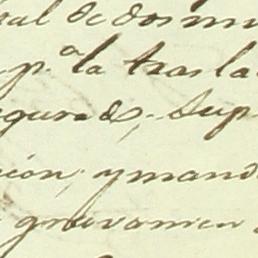 ral de dos mi
p.ª la trasla
egurads. Sup
cion, y mand
gravamen